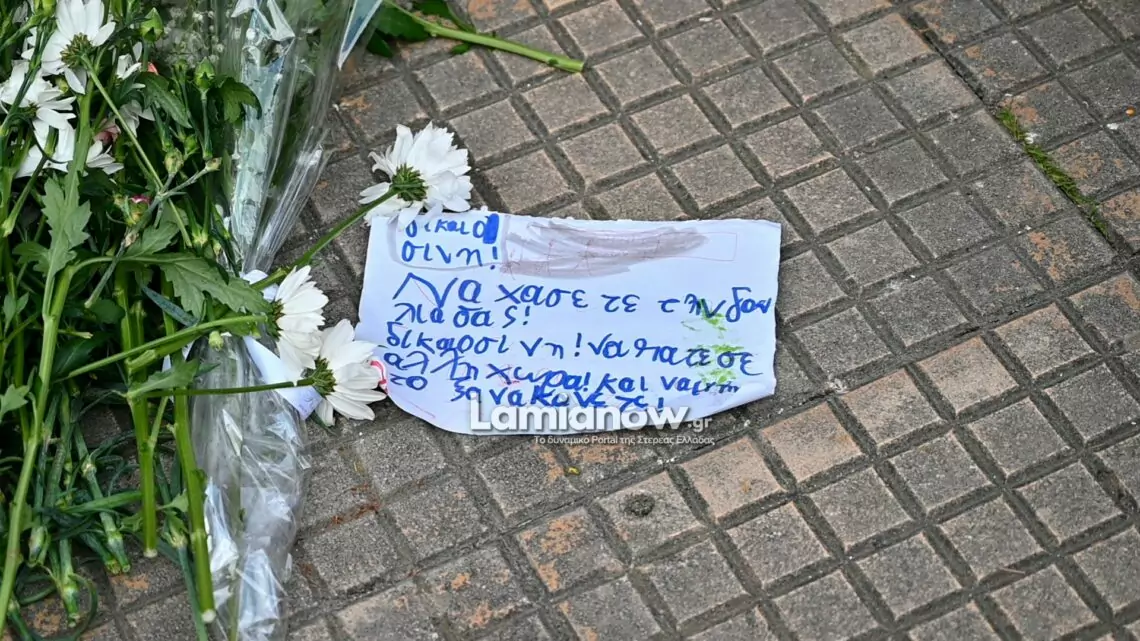 δικαιο
σινη!
Να χασετε τ ην δου
λια σας!
δικαροσι νη! να πατε σε
αλλη χωρα! και να μη
το ξανακανετε!
Lamianow.gr
Το δυναμικό Portal της Στερεάς Ελλάδας